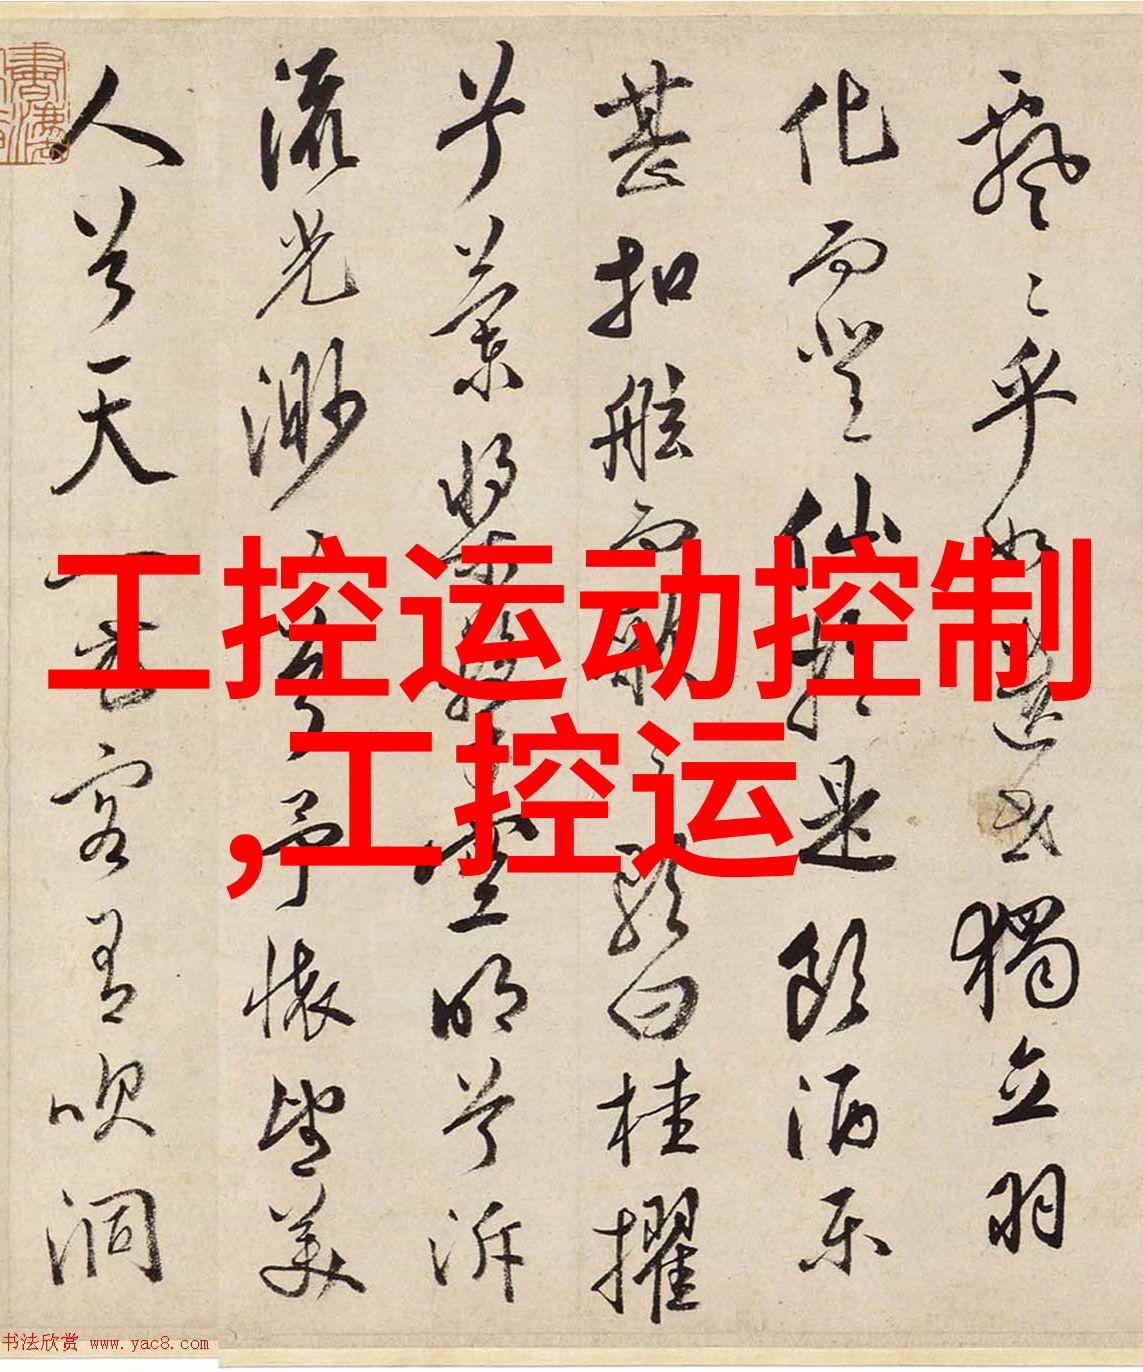 飄〻乎如遺世獨立羽
化而登仙於是飲酒樂
甚扣舷而歌之歌曰桂擢
兮蘭槳擊空明兮泝
流光渺〻兮予懷望美
人兮天一方客有吹洞
工控运动控制
,工控运
书法欣赏 www.yac8.com